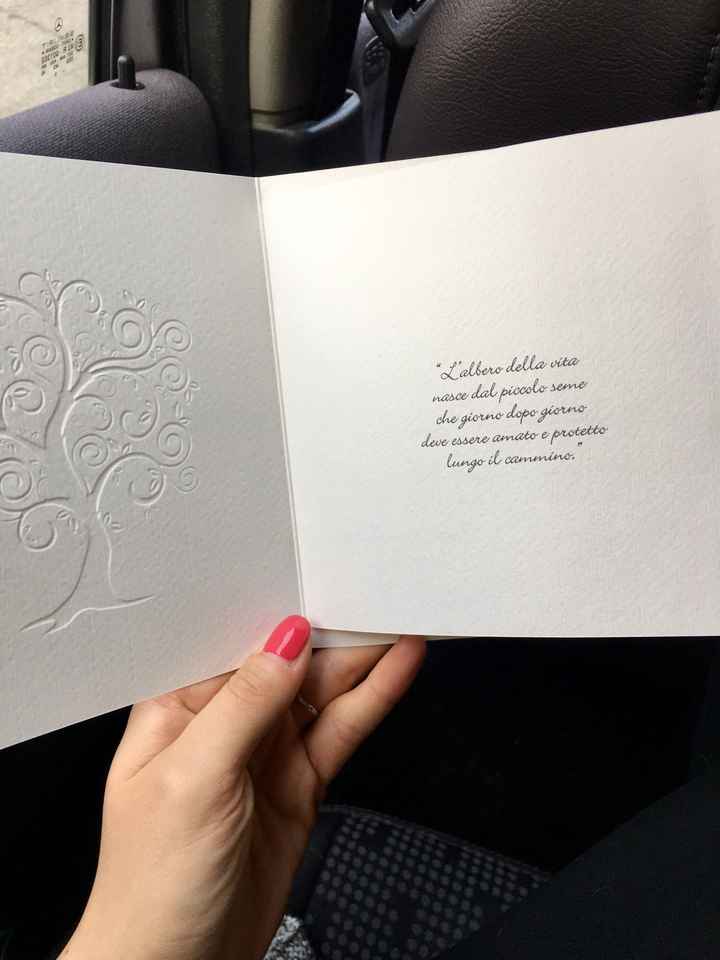 “L'albero della vita
nasce dal piccolo seme
che giorno dopo giorno
deve essere amato e protetto
lungo il cammino.”